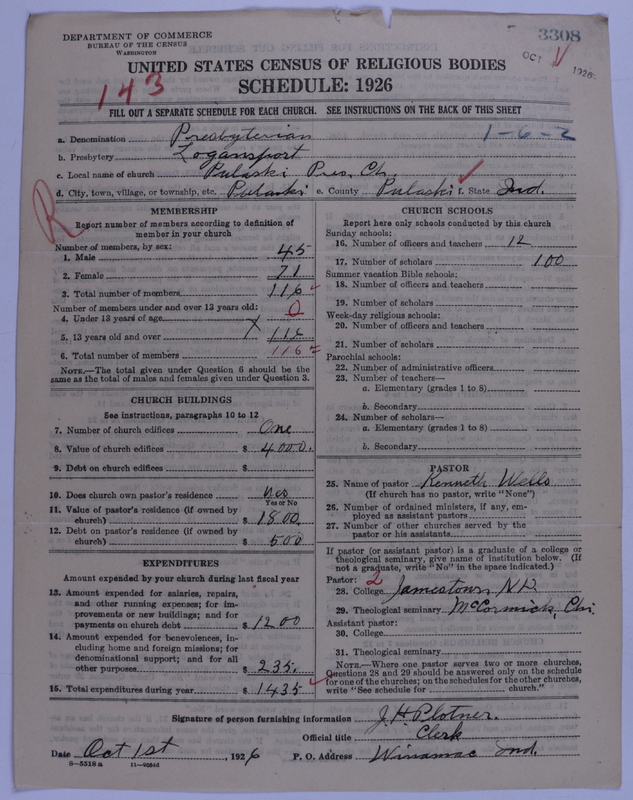 DEPARTMENT OF COMMERCE
BUREAU OF THE CENSUS
WASHINGTON
3308
OCT 1926
UNITED STATES CENSUS OF RELIGIOUS BODIES
SCHEDULE: 1926
143
FILL OUT A SEPARATE SCHEDULE FOR EACH CHURCH. SEE INSTRUCTIONS ON THE BACK OF THIS SHEET
a. Denomination Presbyterian 1-6-2
b. Presbytery Logansport
c. Local name of church Pulaski Pres. Ch.
d. City, town, village, or township, etc. Pulaski e. County Pulaski f. State Ind.
R
MEMBERSHIP
Report number of members according to definition of
member in your church
Number of members, by sex:
1. Male 45
2. Female 71
3. Total number of members 116
Number of members under and over 13 years old:
4. Under 13 years of age 0
5. 13 years old and over 116
6. Total number of members 116
NOTE.—The total given under Question 6 should be the
same as the total of males and females given under Question 3.
CHURCH BUILDINGS
See instructions, paragraphs 10 to 12
7. Number of church edifices One
8. Value of church edifices $ 4000.
9. Debt on church edifices $
10. Does church own pastor's residence yes
Yes or No
11. Value of pastor's residence (if owned by
church) $ 1800.
12. Debt on pastor's residence (if owned by
church) $ 500
EXPENDITURES
Amount expended by your church during last fiscal year
13. Amount expended for salaries, repairs,
and other running expenses; for im-
provements or new buildings; and for
payments on church debt $ 1200
14. Amount expended for benevolences, in-
cluding home and foreign missions; for
denominational support; and for all
other purposes $ 235.
15. Total expenditures during year $ 1435
CHURCH SCHOOLS
Report here only schools conducted by this church
Sunday schools:
16. Number of officers and teachers 12
17. Number of scholars 100
Summer vacation Bible schools:
18. Number of officers and teachers
19. Number of scholars
Week-day religious schools:
20. Number of officers and teachers
21. Number of scholars
Parochial schools:
22. Number of administrative officers
23. Number of teachers—
a. Elementary (grades 1 to 8)
b. Secondary
24. Number of scholars—
a. Elementary (grades 1 to 8)
b. Secondary
PASTOR
25. Name of pastor Kenneth Wells
(If church has no pastor, write "None")
26. Number of ordained ministers, if any, em-
ployed as assistant pastors
27. Number of other churches served by the
pastor or his assistants
If pastor (or assistant pastor) is a graduate of a college or
theological seminary, give name of institution below. (If
not a graduate, write "No" in the space indicated.)
Pastor: 2
28. College Jamestown, N.D.
29. Theological seminary McCormick, Chi.
Assistant pastor:
30. College
31. Theological seminary
NOTE.—Where one pastor serves two or more churches,
Questions 28 and 29 should be answered only on the schedule
for one of the churches; on the schedules for the other churches,
write "See schedule for church."
Signature of person furnishing information J H Plotner.
Official title Clerk
Date Oct 1st, 1926 P. O. Address Winamac Ind.
8—5518 a